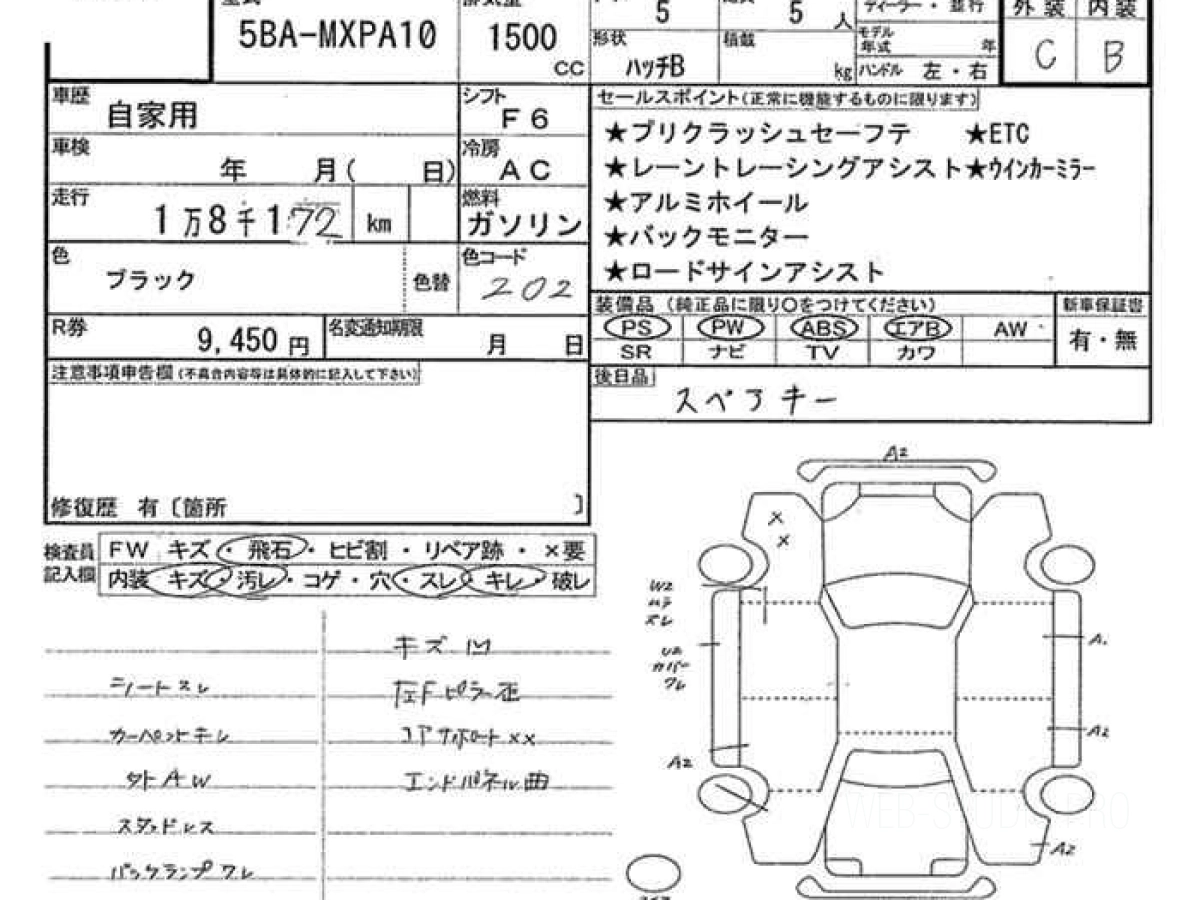 5BA-MXPA10
1500
CC
5
5人
ディーラー・並行
形状
ハッチB
積載
kg
モデル年式
年
ハンドル 左・右
外装 内装
C B
車歴
自家用
シフト
F6
車検
年 月( 日)
冷房
AC
走行
1万8千172 km
燃料
ガソリン
色
ブラック
色替
色コード
202
R券
9,450円
名変通知期限
月 日
セールスポイント(正常に機能するものに限ります)
★プリクラッシュセーフテ ★ETC
★レーントレーシングアシスト★ウインカーミラー
★アルミホイール
★バックモニター
★ロードサインアシスト
装備品 (純正品に限り〇をつけてください)
新車保証書
PS PW ABS エアB AW
有・無
SR ナビ TV カワ
後日品
スペアキー
注意事項申告欄(不具合内容等は具体的に記入して下さい)
修復歴 有〔箇所 〕
検査員記入欄
FW キズ・飛石・ヒビ割・リペア跡・×要
内装 キズ・汚レ・コゲ・穴・スレ・キレ・破レ
キズ凹
シートスレ
左Fピラー歪
カーペットキレ
コアサポート××
タトAW
エンドパネル曲
スタッドレス
バックランプワレ
A2
×
×
W2
ムラ
スレ
U2
カバー
ワレ
A2
A.
A2
A2
WEB-STUDIO.RO